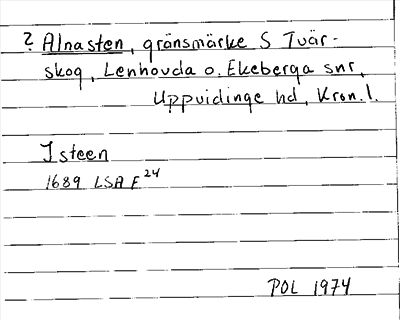 ? Alnasten, gränsmärke S Tvär-
skog, Lenhovda o. Ekeberga snr,
Uppvidinge hd, Kron. l.
Isteen
1689 LSA E 24
POL 1974